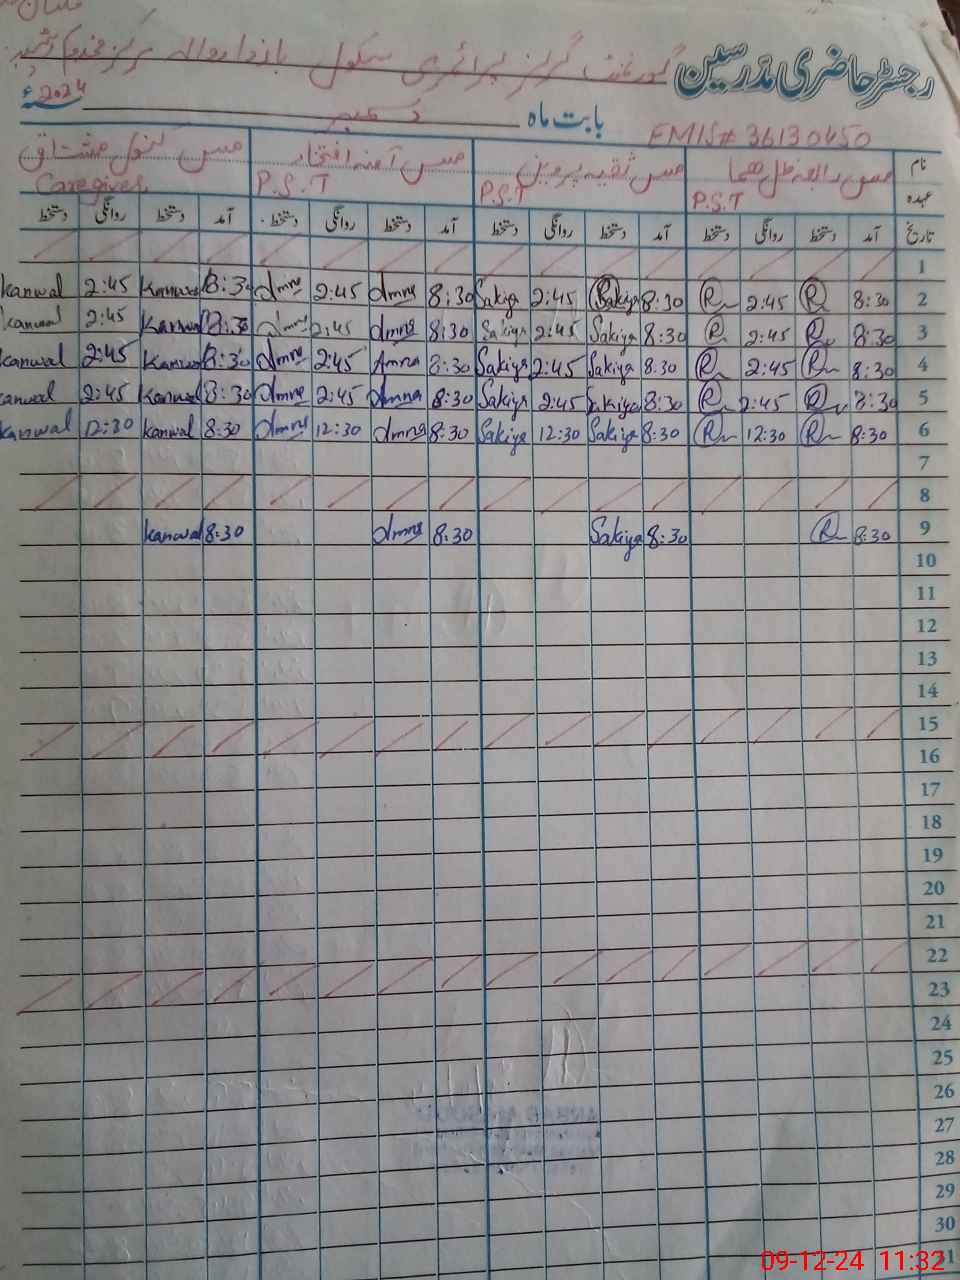 رجسٹر حاضری مدرسین گورنمنٹ گرلز پرائمری سکول
بابت ماہ دسمبر 2024ء
EMIS# 36130450
نام مس مس ثقیہ پروین مس آمنہ افتخار مس کنول مشتاق
عہدہ P.S.T P.S.T P.S.T Caregiver
تاریخ آمد دستخط روانگی دستخط آمد دستخط روانگی دستخط آمد دستخط روانگی دستخط آمد دستخط روانگی دستخط
1
2 8:30 R 2:45 R 8:30 Sakiya 2:45 Sakiya 8:30 Amna 2:45 Amna 8:30 Kanwal 2:45 Kanwal
3 8:30 R 2:45 R 8:30 Sakiya 2:45 Sakiya 8:30 Amna 2:45 Amna 8:30 Kanwal 2:45 Kanwal
4 8:30 R 2:45 R 8:30 Sakiya 2:45 Sakiya 8:30 Amna 2:45 Amna 8:30 Kanwal 2:45 Kanwal
5 8:30 R 2:45 R 8:30 Sakiya 2:45 Sakiya 8:30 Amna 2:45 Amna 8:30 Kanwal 2:45 Kanwal
6 8:30 R 12:30 R 8:30 Sakiya 12:30 Sakiya 8:30 Amna 12:30 Amna 8:30 Kanwal 12:30 Kanwal
7
8
9 8:30 R 8:30 Sakiya 8:30 Amna 8:30 Kanwal
10
11
12
13
14
15
16
17
18
19
20
21
22
23
24
25
26
27
28
29
30
31
09-12-24 11:32